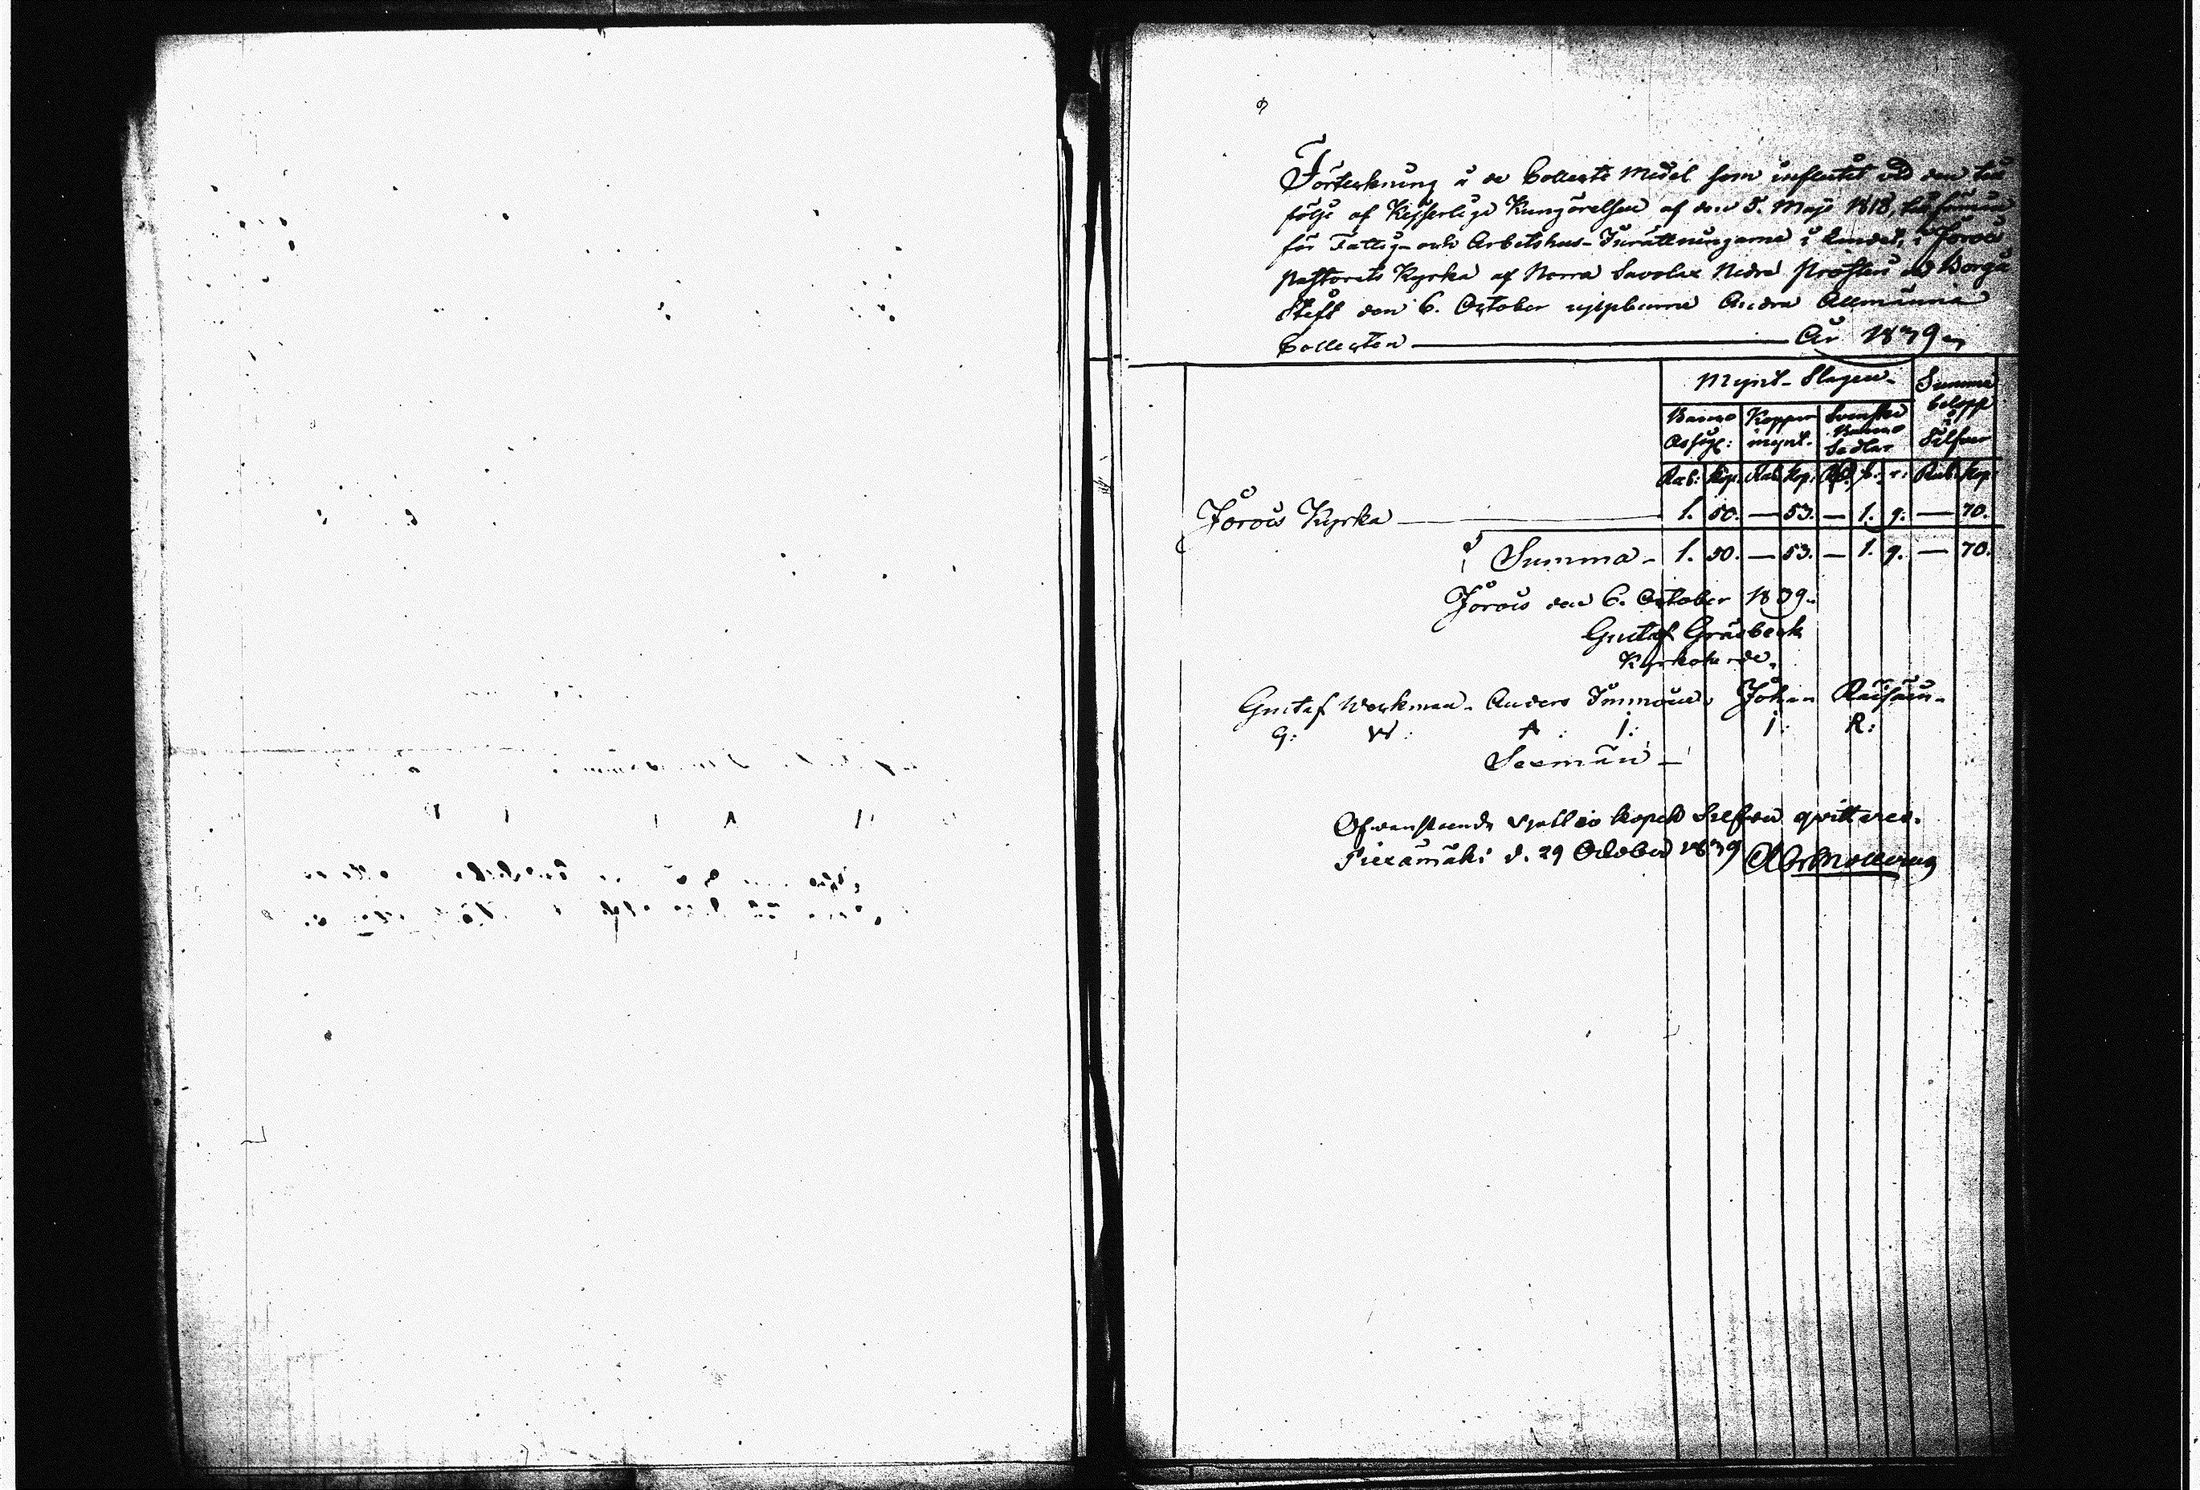 Förteckning å de Collecte Medel som influtit vid den till
följe af Kejserliga Kungörelsen af den 5. Maji 1818, till förmån
för Fattig- och Arbetshus-Inrättningarne i Landet, i Jorois
Pastorats Kyrka af Norra Savolax Nedra Prosteri och Borgå
Stift den 6. October uppburne Andra Allmänna
Collecten — År 1839.
Mynt-Slagen. Summa
belopp
i
Silfver
Banco
Assign: Koppar
mynt. Svenska
Banco
Sedlar
Rub: Kop: Rub: Kop: Rd. s. r. Rub: Kop:
Jorois Kyrka — 1. 50. — 53. — 1. 9. — 70.
Summa — 1. 50. — 53. — 1. 9. — 70.
Jorois den 6. October 1839.
Gustaf Gråsbeck
Kyrkoherde.
Gustaf Workman. Anders Immonen. Johan Räisäin.
G: W: A: I: I: R:
Sexmän
Ofvanstående sjuttio kopek Silfver qvitteras.
Piexämäki d. 29 October 1839